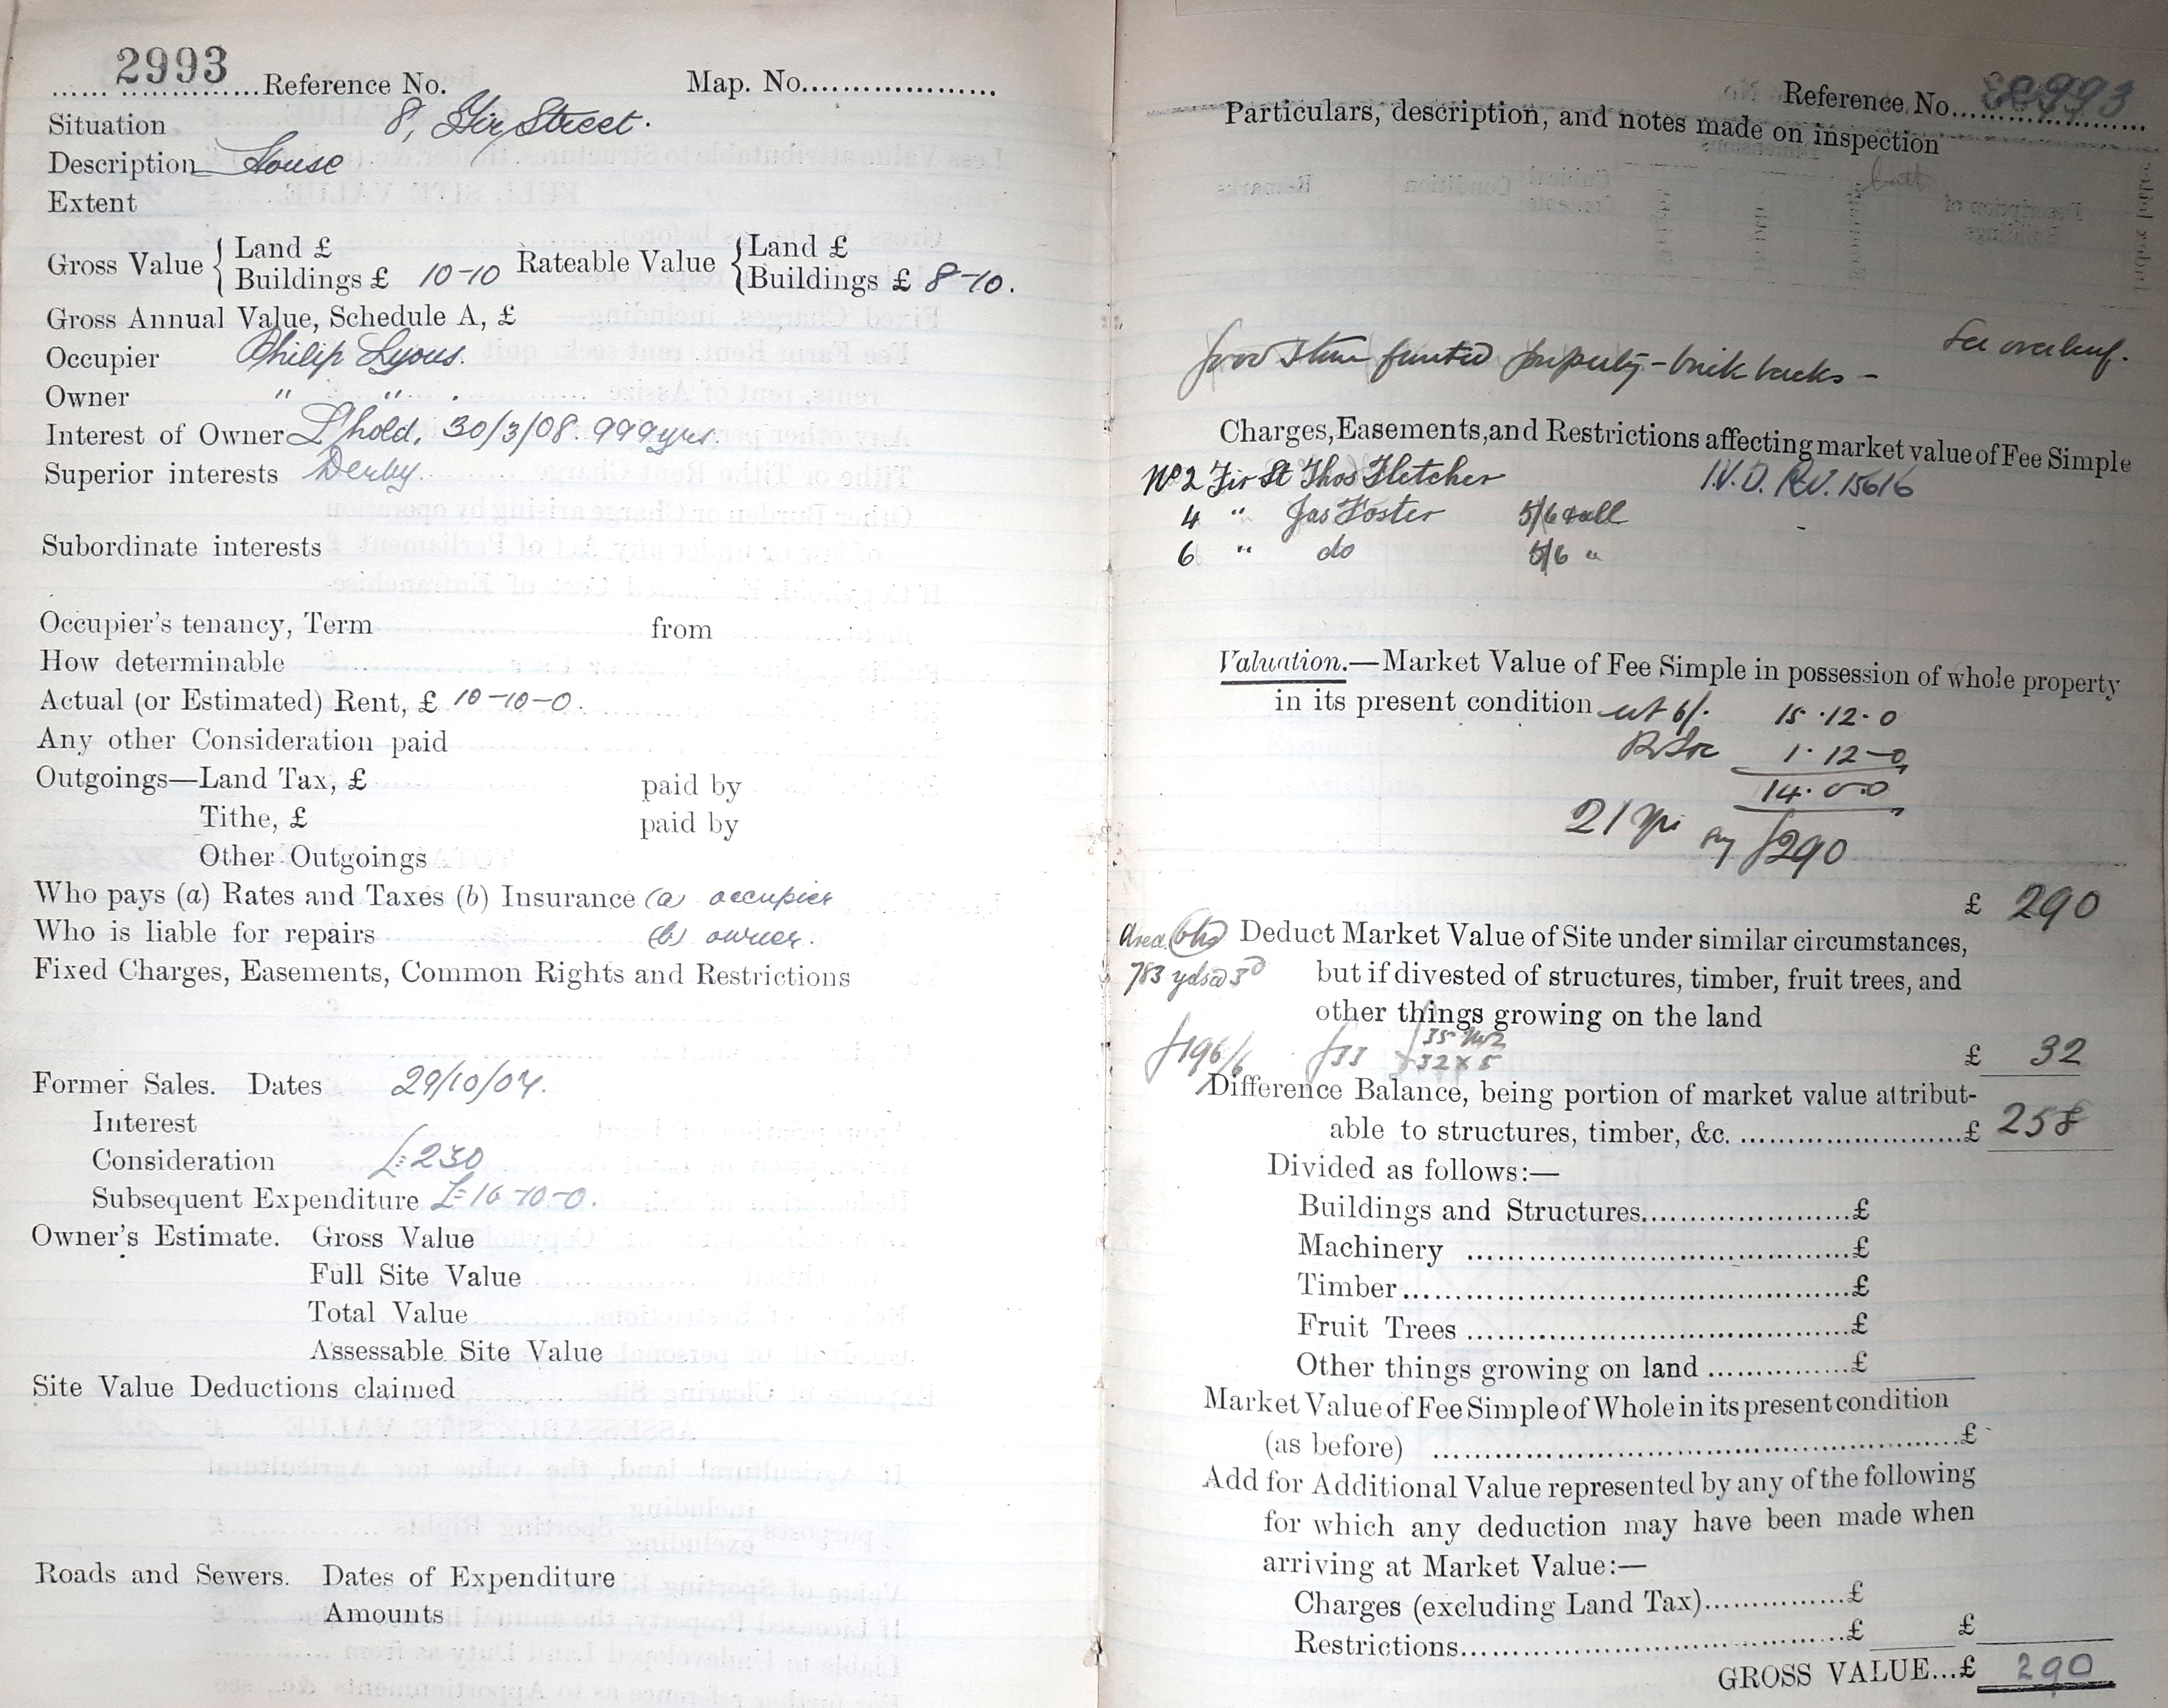 2993
Reference No. Map. No.
Situation 8, Fir Street.
Description House
Extent
Gross Value { Land £
Buildings £ 10-10
Rateable Value { Land £
Buildings £ 8-10.
Gross Annual Value, Schedule A, £
Occupier Philip Lyous.
Owner " " .
Interest of Owner L'hold, 30/3/08. 999 yrs.
Superior interests Derby.
Subordinate interests
Occupier's tenancy, Term from
How determinable
Actual (or Estimated) Rent, £ 10-10-0.
Any other Consideration paid
Outgoings—Land Tax, £ paid by
Tithe, £ paid by
Other Outgoings
Who pays (a) Rates and Taxes (b) Insurance (a) occupier
Who is liable for repairs (b) owner.
Fixed Charges, Easements, Common Rights and Restrictions
Former Sales. Dates 29/10/07.
Interest
Consideration £230
Subsequent Expenditure £16-10-0.
Owner's Estimate. Gross Value
Full Site Value
Total Value
Assessable Site Value
Site Value Deductions claimed
Roads and Sewers. Dates of Expenditure
Amounts
Reference No. 2993
Particulars, description, and notes made on inspection
See overleaf.
Good stone fronted property - brick backs -
Charges, Easements, and Restrictions affecting market value of Fee Simple
No 2 Fir St Thos Fletcher I.V.D. Rv. 15616
4 " Jas Foster 5/6 &all
6 " do 5/6 "
Valuation.—Market Value of Fee Simple in possession of whole property
in its present condition at 6/- 15.12.0
1.12-0
14.0.0
21 yrs say £290
£ 290
Area
Deduct Market Value of Site under similar circumstances,
783 yds @ 3d but if divested of structures, timber, fruit trees, and
other things growing on the land
£196/6 £33 32 x 5 £ 32
Difference Balance, being portion of market value attribut-
able to structures, timber, &c. £ 258
Divided as follows:—
Buildings and Structures £
Machinery £
Timber £
Fruit Trees £
Other things growing on land £
Market Value of Fee Simple of Whole in its present condition
(as before) £
Add for Additional Value represented by any of the following
for which any deduction may have been made when
arriving at Market Value:—
Charges (excluding Land Tax) £
Restrictions £ £
GROSS VALUE...£ 290